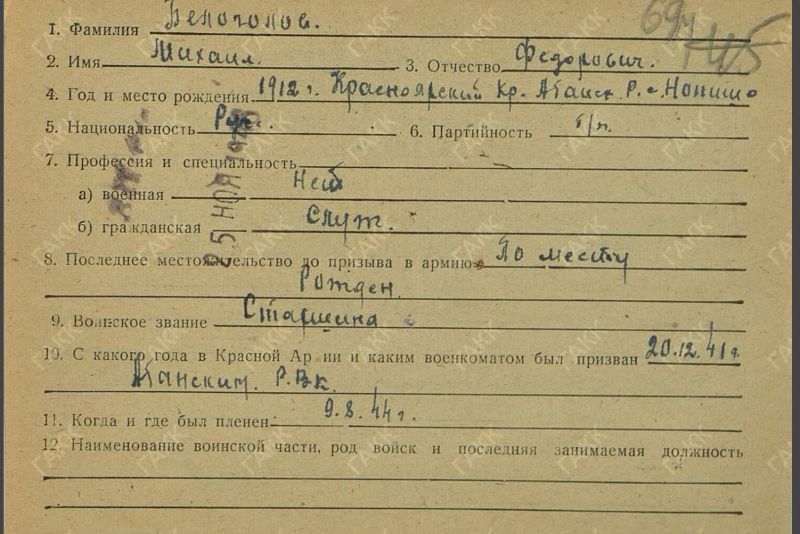 694
1. Фамилия Белоголов.
2. Имя Михаил. 3. Отчество Федорович.
4. Год и место рождения 1912 г. Красноярский Кр. Р. с.
5. Национальность Рус. 6. Партийность б/п.
7. Профессия и специальность
а) военная Нет
б) гражданская Служ.
8. Последнее местожительство до призыва в армию По месту
Рожден.
9. Воинское звание Старшина
10. С какого года в Красной Армии и каким военкоматом был призван 20.12.41 г.
Р.В.К.
11. Когда и где был пленен 9.8.44 г.
12. Наименование воинской части, род войск и последняя занимаемая должность